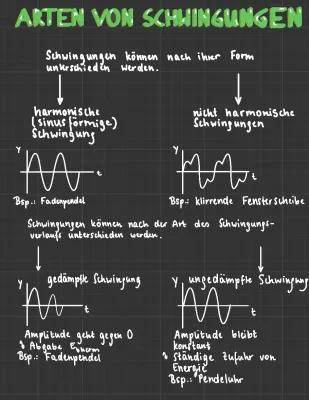 ARTEN VON SCHWINGUNGEN
Schwingungen können nach ihrer Form
unterschieden werden.
harmonische
(sinusförmige)
Schwingung
nicht harmonische
Schwingungen
y
t
y
t
Bsp.: Fadenpendel
Bsp.: klirrende Fensterscheibe
Schwingungen können nach der Art des Schwingungs-
verlaufs unterschieden werden.
gedämpfte Schwingung
ungedämpfte Schwingung
y
t
y
t
Amplitude geht gegen 0
Abgabe E therm
Bsp.: Fadenpendel
Amplitude bleibt
konstant
Ständige Zufuhr von
Energie
Bsp.: Pendeluhr